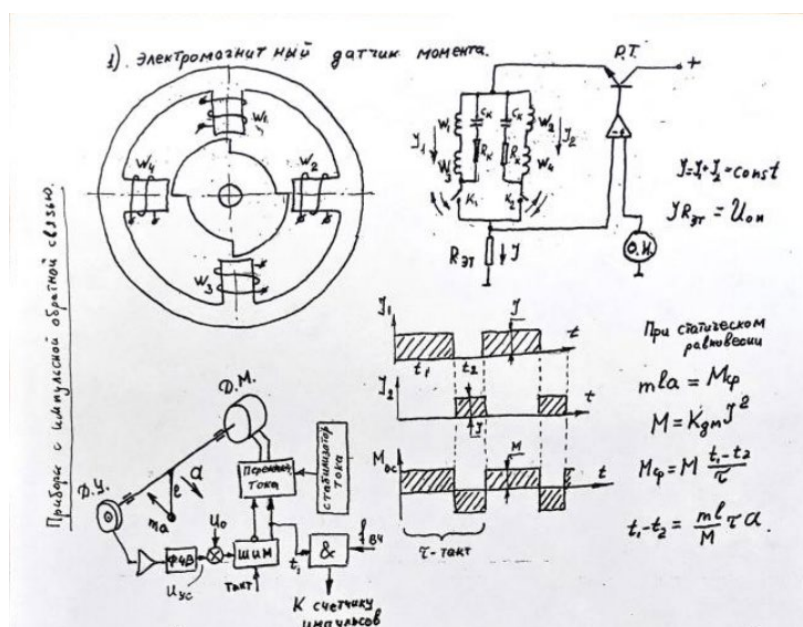 Приборы с импульсной обратной связью.
1). Электромагнитный датчик момента.
W1
W4
W2
W3
Р.Т.
+
W1
Cк
Cк
W2
J1
Rк
Rк
J2
W3
W4
K1
K2
Rэт
J
О.Н.
J=J1+J2=const
J Rэт = Uоп
J1
J
t
t1
t2
J2
J
t
Mос
M
t
τ-такт
При статическом
равновесии
mla = Mср
M = Kдм J²
Mср = M (t1-t2)/τ
t1-t2 = (ml/M) τ a.
Д.М.
Д.У.
l
a
ma
тока
стабилизатор
тока
U0
ФЧВ
ШИМ
&
fвч
Uус
такт
t1
К счетчику
импульсов